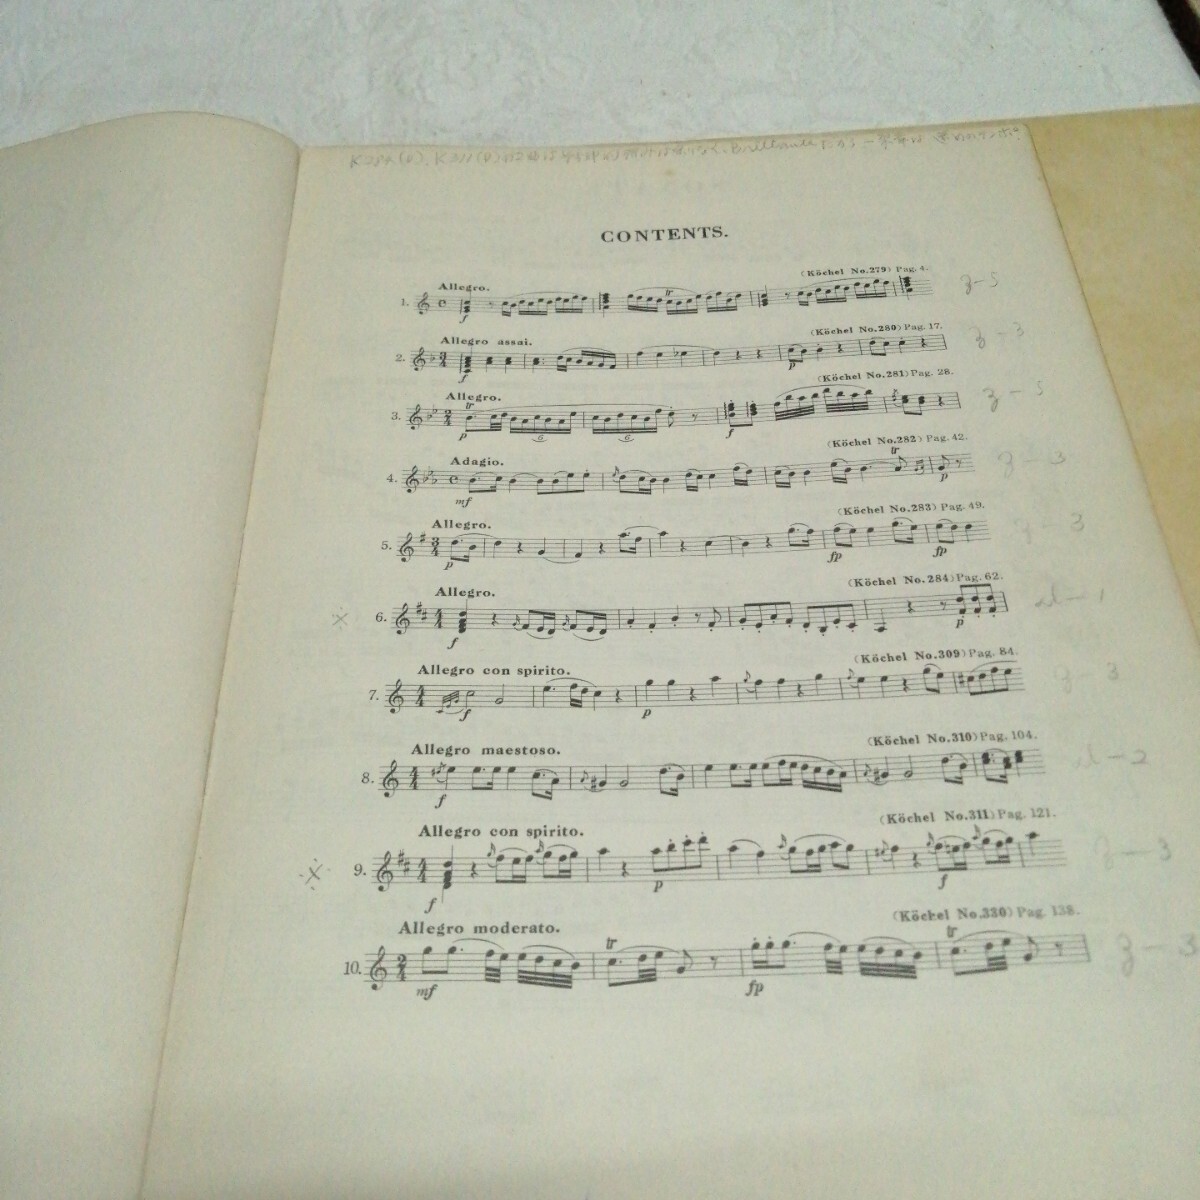 CONTENTS.
Allegro. (Köchel No.279) Pag. 4.
1. f tr
Allegro assai. (Köchel No.280) Pag. 17.
2. f p
Allegro. (Köchel No.281) Pag. 28.
3. tr p 6 6 f
Adagio. (Köchel No.282) Pag. 42.
4. mf tr p
Allegro. (Köchel No.283) Pag. 49.
5. 3/4 p fp fp
Allegro. (Köchel No.284) Pag. 62.
6. f p
Allegro con spirito. (Köchel No.309) Pag. 84.
7. f p
Allegro maestoso. (Köchel No.310) Pag. 104.
8. f
Allegro con spirito. (Köchel No.311) Pag. 121.
9. f p f
Allegro moderato. (Köchel No.330) Pag. 138.
10. 2/4 mf tr fp tr